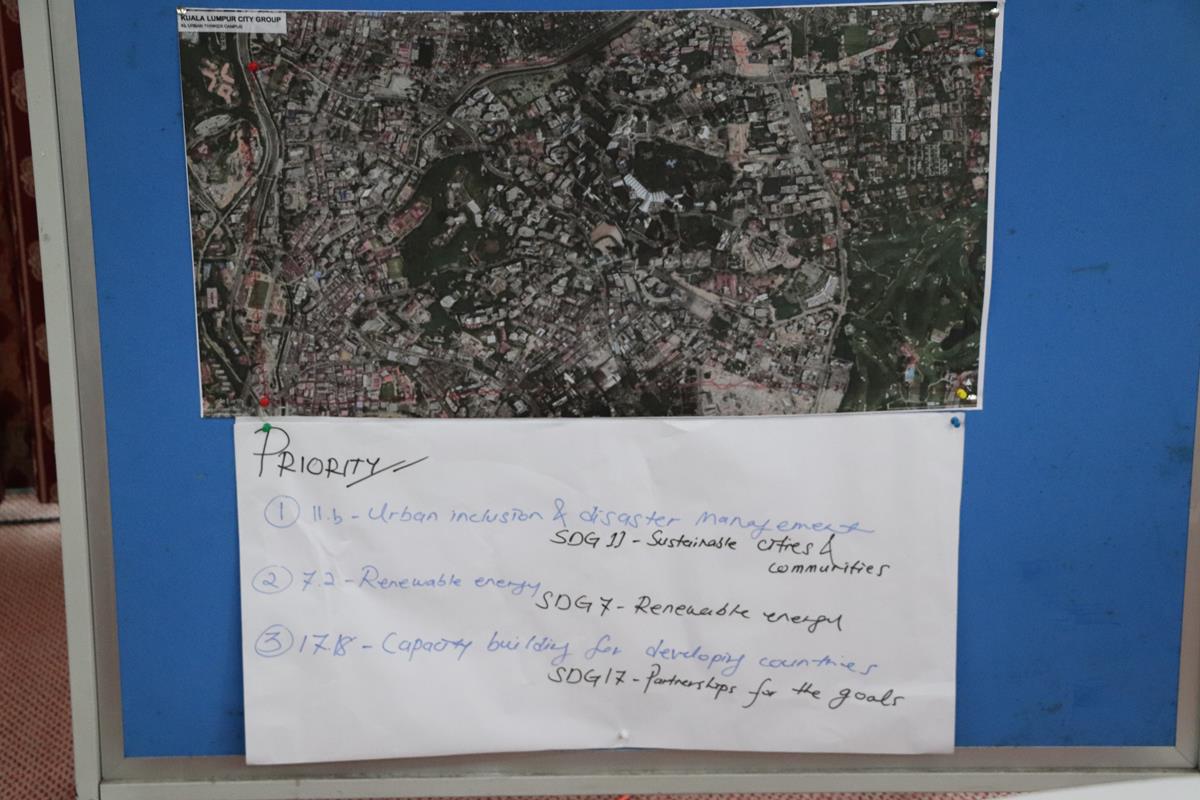 KUALA LUMPUR CITY GROUP
KL URBAN THINKER CAMPUS
PRIORITY
① 11.b - Urban inclusion & disaster management
SDG 11 - Sustainable cities &
communities
② 7.2 - Renewable energy
SDG 7 - Renewable energy
③ 17.18 - Capacity building for developing countries
SDG 17 - Partnerships for the goals